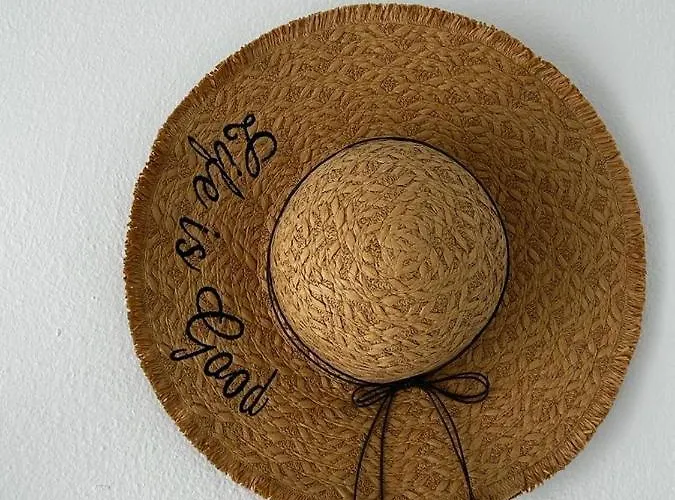 Life is Good